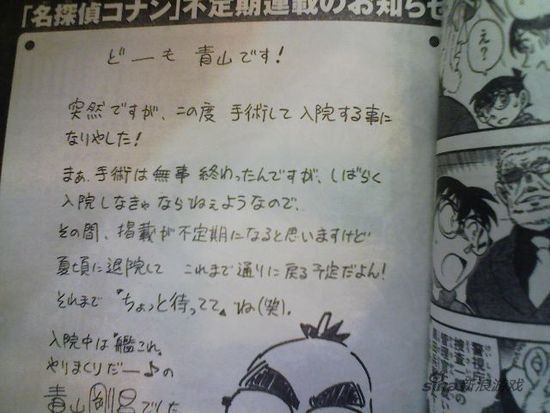 「名探偵コナン」不定期連載のお知らせ
どーも 青山です!
突然ですが、この度 手術して 入院する事に
なりやした!
まぁ、手術は無事 終わったんですが、しばらく
入院しなきゃならねぇようなので、
その間、掲載が不定期になると思いますけど
夏頃に退院して これまで通りに戻る予定だよん!
それまで〝ちょっと待ってて〟ね(笑)。
入院中は〝艦これ〟
やりまくりだー♪の
青山剛昌でした
え?
警視
捜査
管理
sina新浪游戏